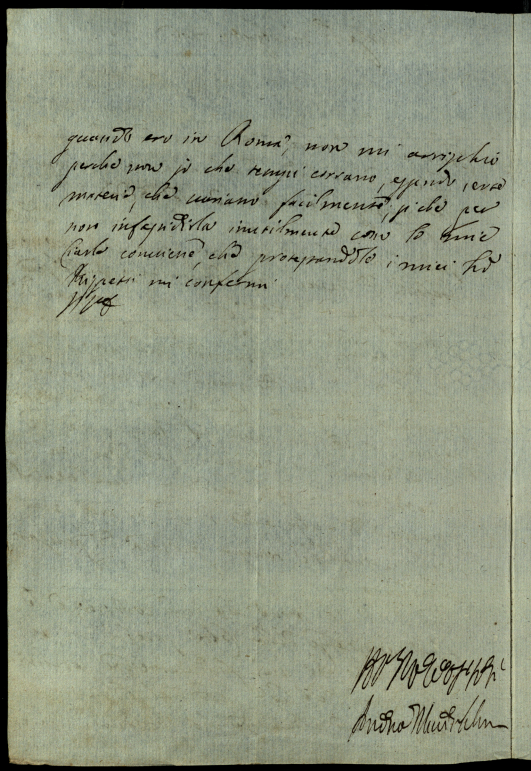 quando ero in Roma, non mi arrischio
perche non so che tempi corrano, essendo certe
materie, che variano facilmente, si che per
non infastidirla inutilmente con le mie
Ciarle conviene, che protestandole i miei
Rispetti mi confermi
Andrea